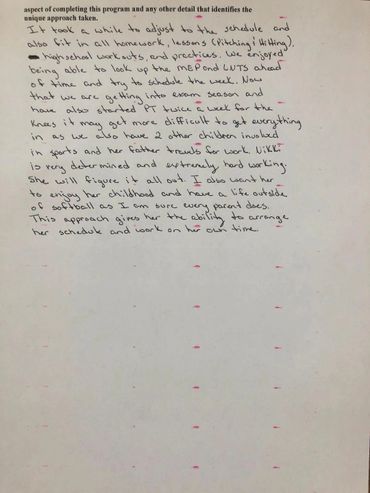 aspect of completing this program and any other detail that identifies the
unique approach taken.
It took a while to adjust to the schedule and
also fit in all homework, lessons (Pitching & Hitting),
high school workouts, and practices. We enjoyed
being able to look up the MEP and LNTS ahead
of time and try to schedule the week. Now
that we are getting into exam season and
have also started PT twice a week for the
knees it may get more difficult to get everything
in as we also have 2 other children involved
in sports and her father travels for work. Vikki
is very determined and extremely hard working.
She will figure it all out. I also want her
to enjoy her childhood and have a life outside
of softball as I am sure every parent does.
This approach gives her the ability to arrange
her schedule and work on her own time.